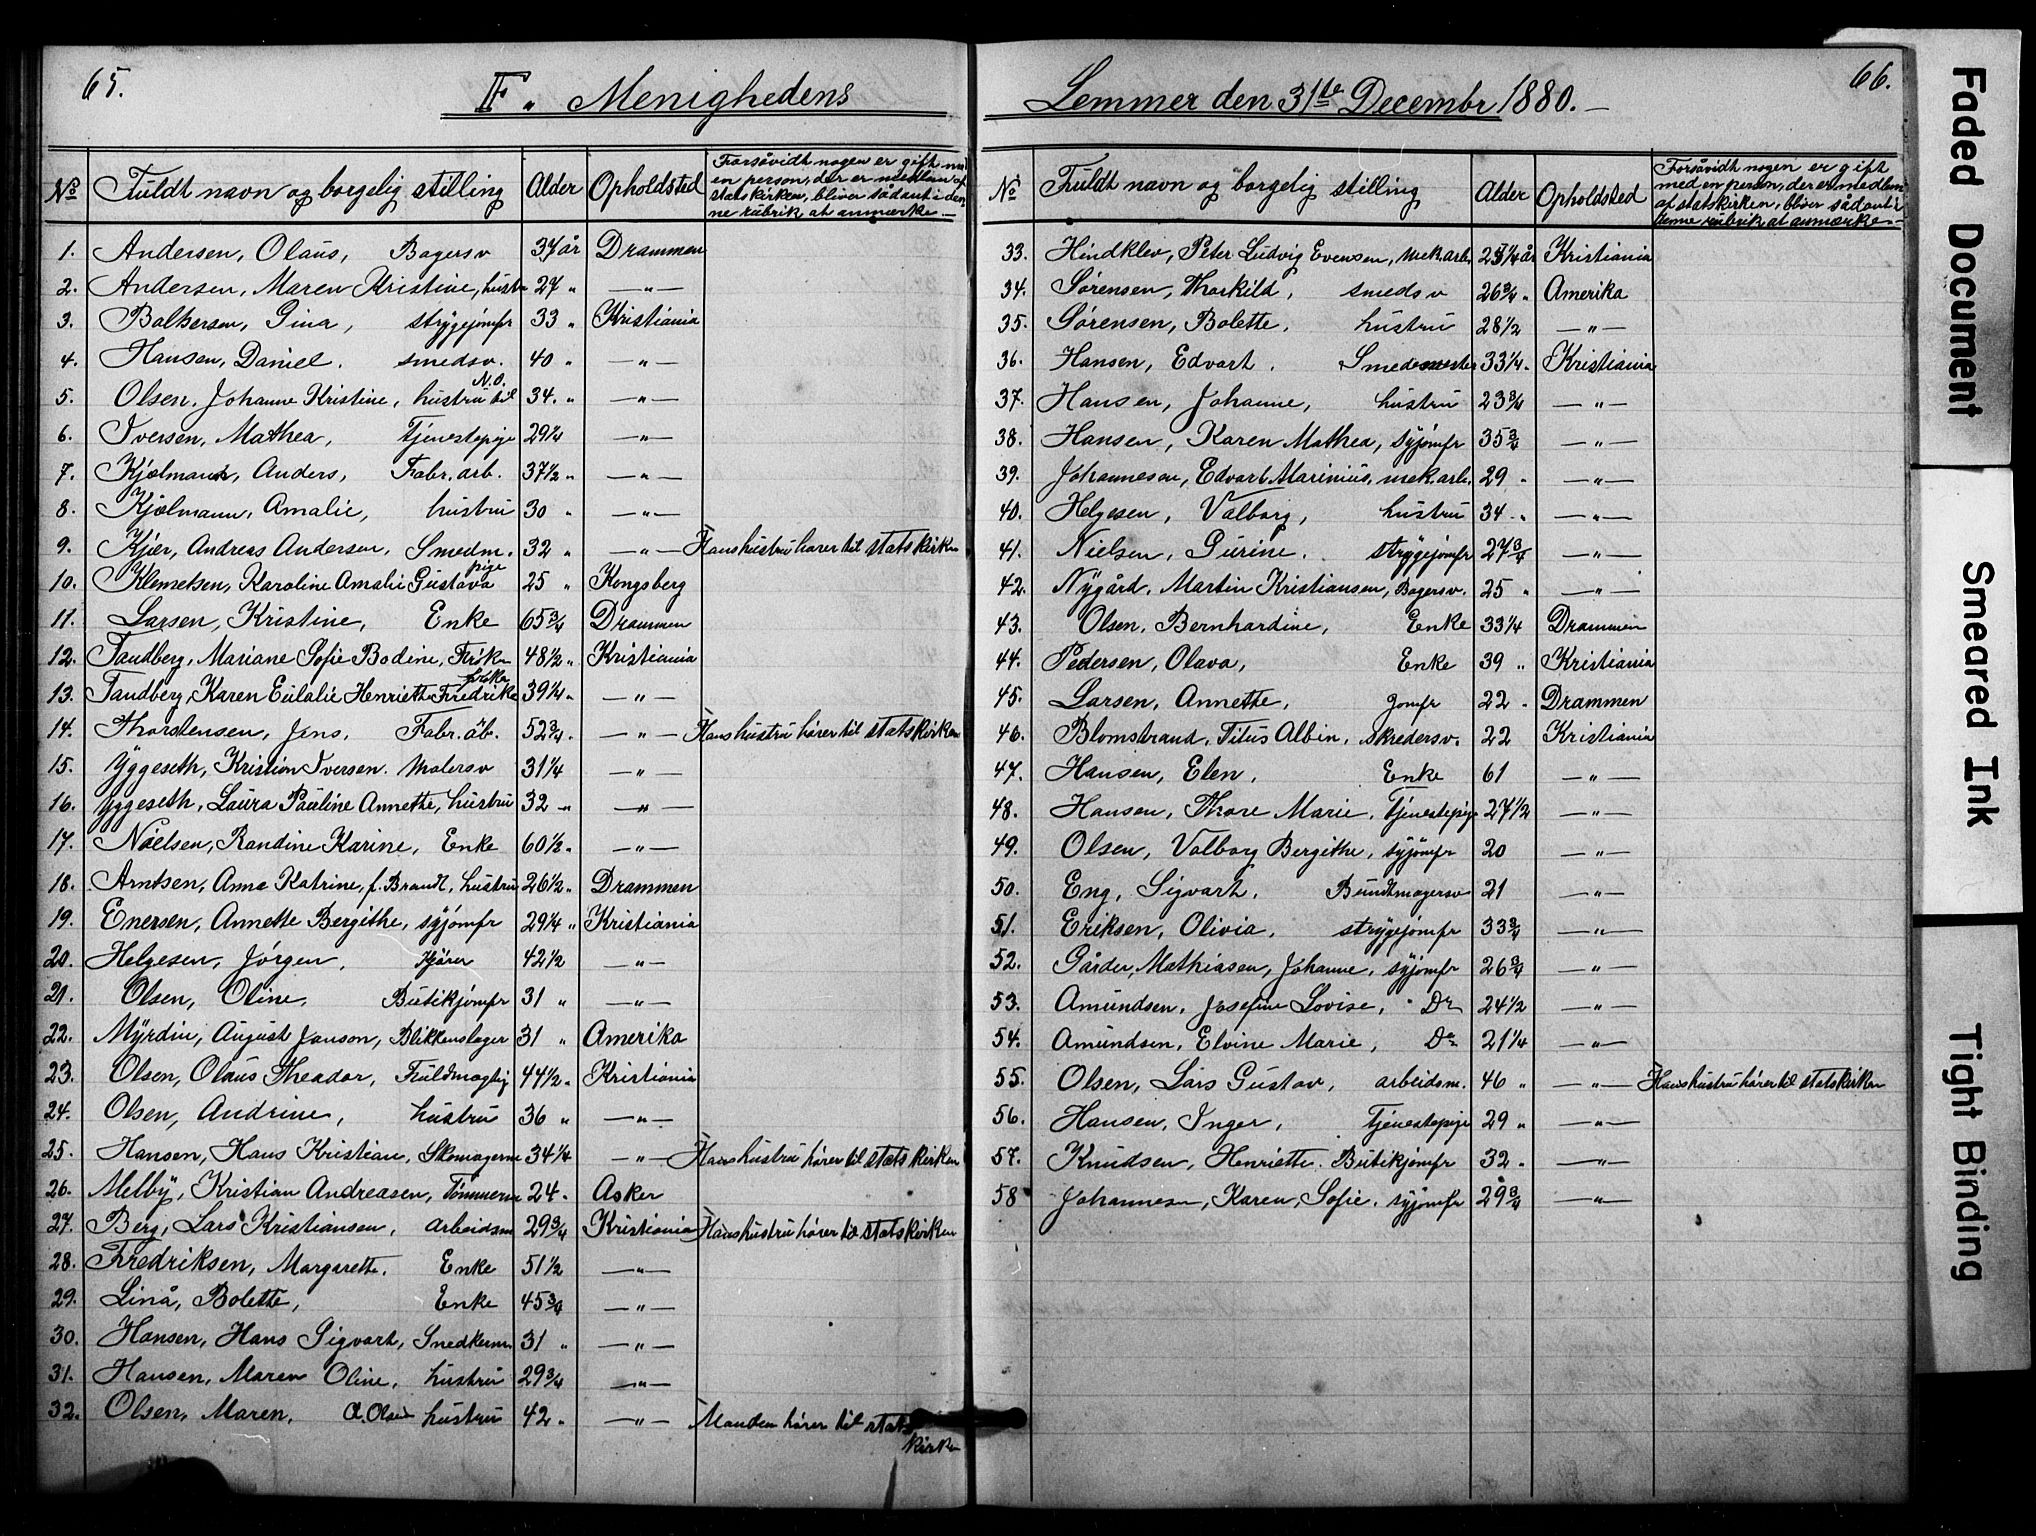 65.
F. Menighedens
No Fuldt navn og borgelig stilling Alder Opholdsted Forsåvidt nogen er gift med en person, der er medlem af statskirken, bliver sådant i denne rubrik at anmærke.
1. Andersen, Olaus, Bagersv 37 år Drammen
2. Andersen, Maren Kristine, hustr 27 " —"—
3. Bolkersen, Gina, strygejomfr 33 " Kristiania
4. Hansen, Daniel. smedsv. 40 " —"—
5. Olsen, Johanne Kristine, hustru til N.O. 34. " —"—
6. Iversen, Mathea, Tjenestepige 29 1/4 —"—
7. Kjølmann, Anders, Fabr. arb. 37 1/2 " —"—
8. Kjølmann, Amalie, hustru 30 " —"—
9. Kjær, Andreas Andersen, Smedm. 32 " —"— Hans hustru hører til statskirken
10. Klemetsen, Karoline Amalie Gustava pige 25 " Kongsberg
11. Larsen, Kristine, Enke 65 3/4 Drammen
12. Tandberg, Mariane Sofie Bodine, Frøken 48 1/2 " Kristiania
13. Tandberg, Karen Eulalie Henriette Fredrikke frøken 39 1/4 " —"—
14. Thorstensen, Jens, Fabr. åb. 52 3/4 " —"— Hans hustru hører til statskirken
15. Yggeseth, Kristian Iversen. Malersv 31 1/4 —"—
16. Yggeseth, Laura Pauline Annette, hustru 32 " —"—
17. Nielsen, Randine Karine, Enke 60 1/2 " —"—
18. Arntsen, Anna Katrine, f. Brandt, hustru 26 1/2 " Drammen
19. Enersen, Annette Bergithe, syjomfr 29 1/4 " Kristiania
20. Helgesen, Jørgen, Kjører 42 1/2 —"—
21. Olsen, Oline, Butikjomfr 31 " —"—
22. Myrdin, August Janson, Blikkenslager 31 " Amerika
23. Olsen, Olaus Theodor, Fuldmægtig 44 1/2 " Kristiania
24. Olsen, Andrine, hustru 36 " —"—
25. Hansen, Hans Kristian, Skomagerm 34 1/4 —"— Hans hustru hører til statskirken
26. Melby, Kristian Andreasen, Tømmerm 24 " Asker
27. Berg, Lars Kristiansen, arbeidsm 29 3/4 Kristiania Hans hustru hører til statskirken
28. Fredriksen, Margarette. Enke 51 1/2 —"—
29. Linå, Bolette, Enke 45 3/4 —"—
30. Hansen, Hans Sigvart, Snedkerm. 31 " —"—
31. Hansen, Maren Oline, hustru 29 3/4 —"—
32. Olsen, Maren. O. Olsens hustru 42 " —"— Manden hører til stats
kirken
66.
Lemmer den 31te Decembr 1880.
No Fuldt navn og borgelig stilling Alder Opholdsted Forsåvidt nogen er gift med en person, der er medlem af statskirken, bliver sådant i denne rubrik at anmærke.
33. Hindklev, Peter Ludvig Evensen, mek. arb. 25 1/4 år Kristiania
34. Sørensen, Thorkild, smedsv 26 3/4 " Amerika
35. Sørensen, Bolette, hustru 28 1/2 —"—
36. Hansen, Edvart. Smedemester 33 1/4 " Kristiania
37. Hansen, Johanne, hustru 23 3/4 —"—
38. Hansen, Karen Mathea, syjomfr 35 3/4 —"—
39. Johannesen, Edvart Marinius, mek. arb. 29 " —"—
40. Helgesen, Valborg, hustru 34 " —"—
41. Nielsen, Gurine. strygejomfr 27 3/4 —"—
42. Nygård, Martin Kristiansen, Bagersv. 25 " —"—
43. Olsen, Bernhardine, Enke 33 1/4 Drammen
44. Pedersen, Olava, Enke 39 " Kristiania
45. Larsen, Annette, Jomfr 22 " Drammen
46. Blomstrand, Titus Albin, Skredersv. 22 Kristiania
47. Hansen, Elen, Enke 61 —"—
48. Hansen, Thore Marie, Tjenestepige 27 1/2 —"—
49. Olsen, Valborg Bergithe, syjomfr 20 —"—
50. Eng, Sigvart, Bundtmagersv 21 —"—
51. Eriksen, Olivia, strygejomfr 33 3/4 —"—
52. Gårder, Mathiasen, Johanne, syjomfr 26 3/4 —"—
53. Amundsen, Josefine Lovise, Do 24 1/2 —"—
54. Amundsen, Elvine Marie, Do 21 1/4 —"—
55. Olsen, Lars Gustav, arbeidsm. 46 " —"— Hans hustru hører til statskirken
56. Hansen, Inger, Tjenestepige 29 " —"—
57. Knudsen, Henriette. Butikjomfr 32 " —"—
58 Johannesen, Karen, Sofie, syjomfr 29 3/4 —"—
Faded Document
Smeared Ink
Tight Binding